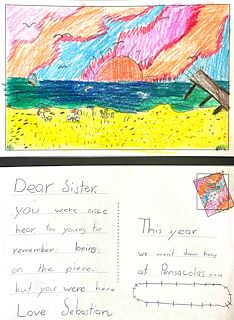 Dear Sister,
you were once
hear, too young to
remember being
on the piere,
but you were here
Love Sebastian
This year
we went down here
at Pensacolas